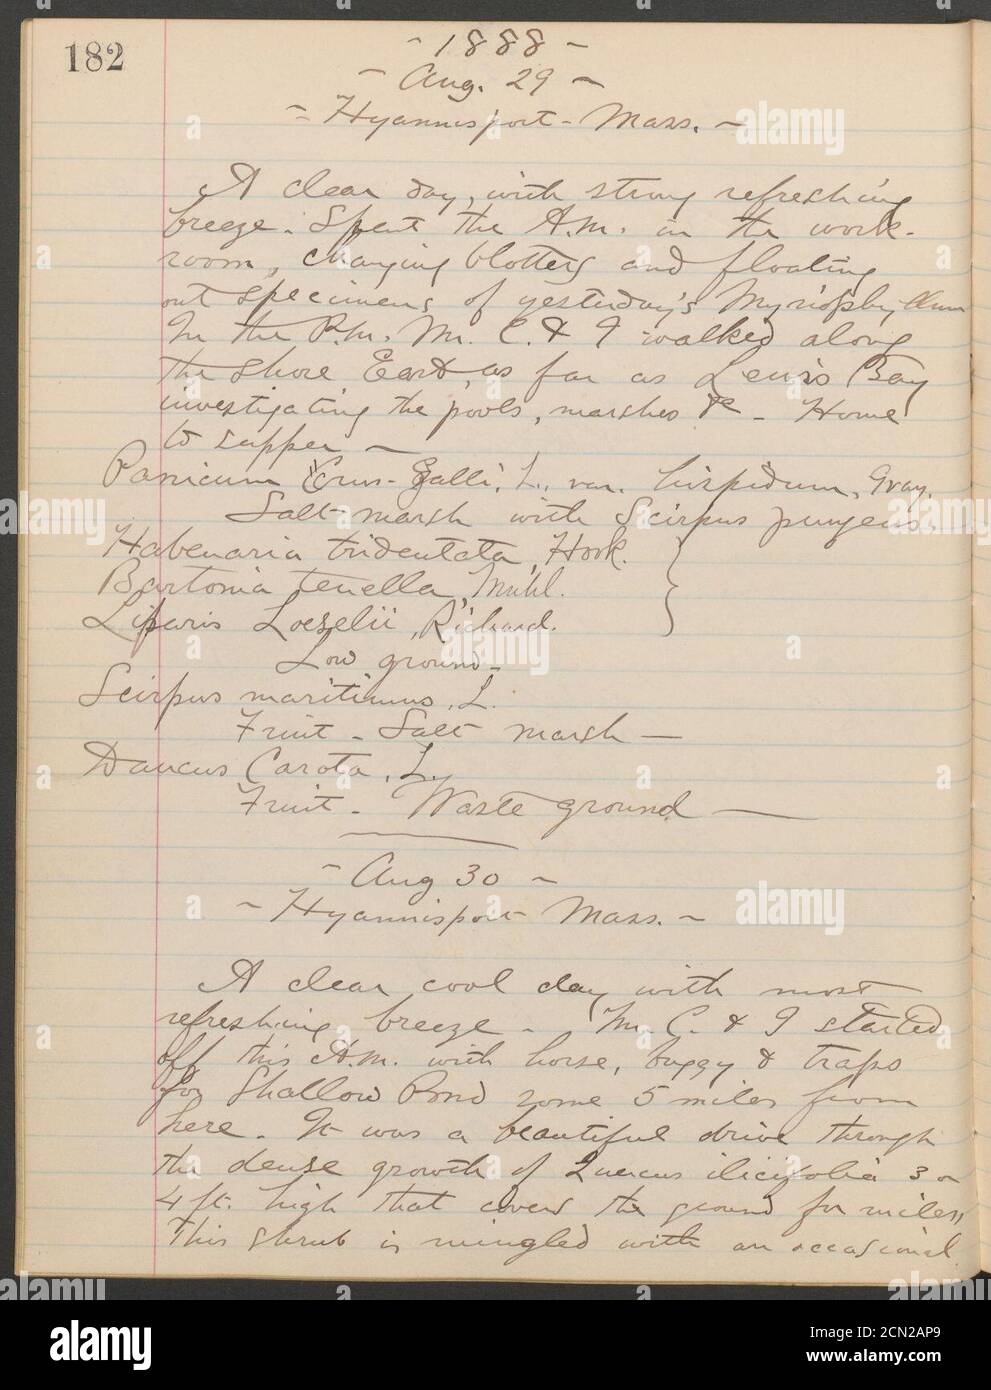 182
- 1888 -
- Aug. 29 -
- Hyannisport - Mass. -
A clear day, with strong refreshing
breeze. Spent the A.M. in the work-
room, changing blotters and floating
out specimens of yesterday's Myriophyllum
In the P.M. Mr. C. & I walked along
the shore East, as far as Lewis Bay
investigating the pools, marshes &c - Home
to supper -
Panicum Crus-galli, L., var. hispidum, Gray.
Salt-marsh with Scirpus pungens.
Habenaria tridentata, Hook.
Bartonia tenella, Muhl.
Liparis Loeselii, Richard.
Low ground -
Scirpus maritimus, L.
Fruit - Salt marsh -
Daucus Carota, L.
Fruit - Waste ground -
- Aug 30 -
- Hyannisport - Mass. -
A clear cool day with most
refreshing breeze - Mr. C. & I started
off this A.M. with horse, buggy & traps
for Shallow Pond some 5 miles from
here. It was a beautiful drive through
the dense growth of Quercus ilicifolia 3 or
4 ft. high that covers the ground for miles,
This shrub is mingled with an occasional
alamy
alamy
Image ID: 2CN2AP9
www.alamy.com